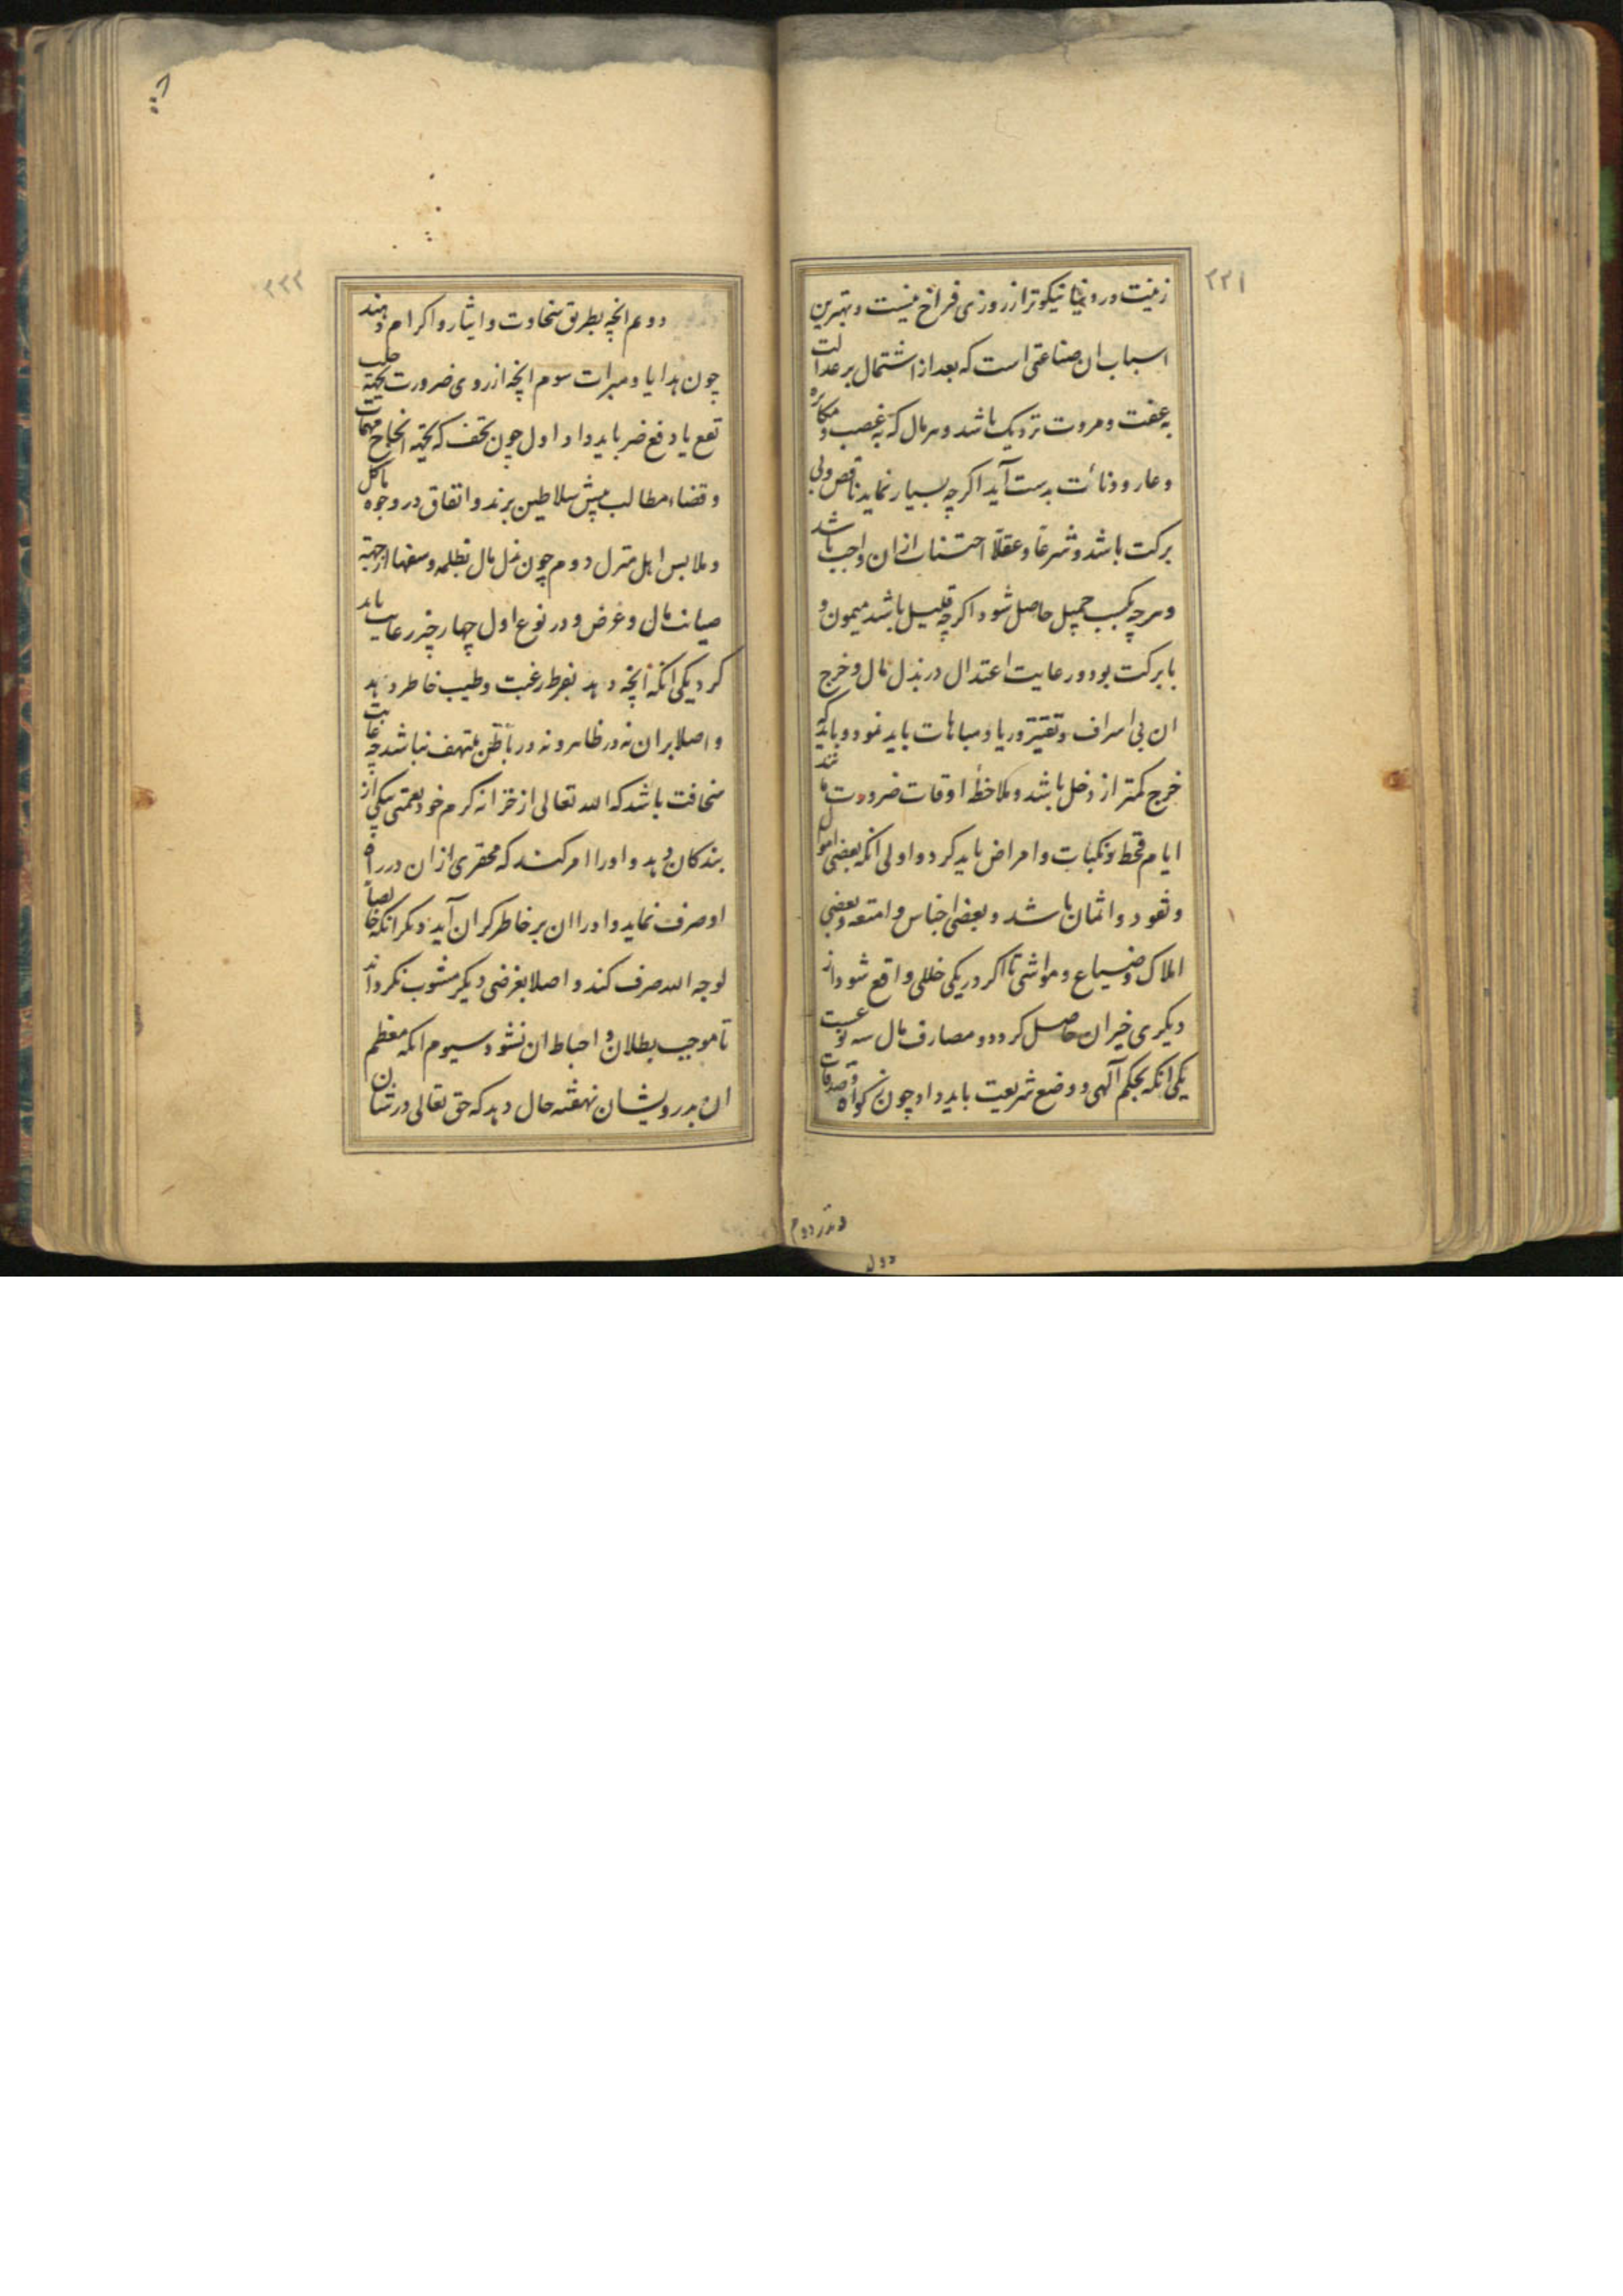 ۲۲۱
زینت در دنیا نیکوتر از روزی فراخ نیست و بهترین
اسباب ان صناعتی است که بعد از اشتمال بر عدالت
به عفت و مروت نزدیک باشد و هر مال که به غصب و مکابره
و عار و دنائت بدست آید اگرچه بسیار نماید ناقص و بی
برکت باشد و شرعا و عقلا اجتناب از ان واجب باشد
و هرچه بکسب جمیل حاصل شود اگرچه قلیل باشد میمون و
با برکت بود و رعایت اعتدال در بذل مال و خرج
ان بی اسراف و تقتیر و ریا و مباهات باید نمود و باید که
خرج کمتر از دخل باشد و ملاحظهٔ اوقات ضرورت مانند
ایام قحط و نکبات و امراض باید کرد و اولی انکه بعضی اموال
و نقود و اثمان باشد و بعضی اجناس و امتعه و بعضی
املاک و ضیاع و مواشی تا اگر در یکی خللی واقع شود از
دیکری خیران حاصل کردد و مصارف مال سه نوعست
یکی انکه بحکم آلهی و وضع شریعت باید داد چون زکواة و صدقات
دوم
۲۲۲
دوم انچه بطریق سخاوت و ایثار و اکرام دهند
چون هدایا و مبرات سوم انچه از روی ضرورت بجهة جلب
نفع یا دفع ضر باید داد اول چون تحف که بجهة انجاح مهمات
و قضاء مطالب پیش سلاطین برند و انفاق در وجوه ماکل
و ملابس اهل منزل دوم چون بذل مال بظلمه و سفها از جهة
صیانت مال و عرض و در نوع اول چهار چیز رعایت باید
کرد یکی انکه انچه دهد بفرط رغبت و طیب خاطر دهد
و اصلا بران نه در ظاهر و نه در باطن متلهف نباشد چه غایت
سخافت باشد که الله تعالی از خزانه کرم خود نعمتی بیکی از
بندکان دهد و او را امر کند که محقری از ان در راه
او صرف نماید و او را ان بر خاطر کران آید دیکر انکه خالصا
لوجه الله صرف کند و اصلا بغرضی دیکر مشوب نکرداند
تا موجب بطلان و احباط ان نشود سیوم انکه معظم
ان بدرویشان نهفته حال دهد که حق تعالی در شان